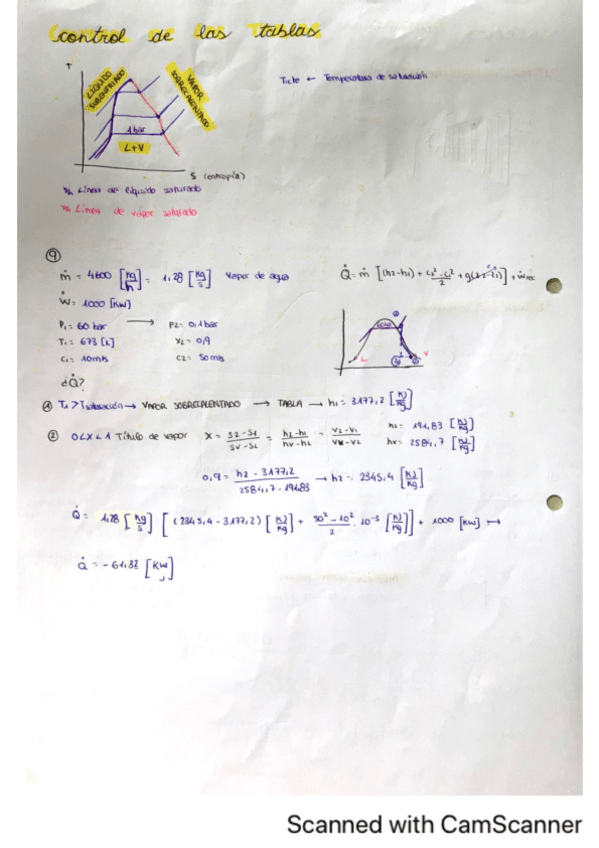 control de las tablas
T
LÍQUIDO SUBENFRIADO
VAPOR SOBRECALENTADO
1 bar
L+V
S (entropía)
T = cte ← Temperatura de saturación
Línea de líquido saturado
Línea de vapor saturado
9
ṁ = 4600 [kg/h] = 1,28 [kg/s] Vapor de agua
Q̇ = ṁ [(h2-h1) + (c2² - c1²)/2 + g(z2-z1)] + Ẇ
Ẇ = 1000 [KW]
P1 = 60 bar → P2 = 0,1 bar
T1 = 673 [K] X2 = 0,9
C1 = 10 m/s C2 = 50 m/s
¿Q̇?
① T1 > Tsaturación → VAPOR SOBRECALENTADO → TABLA → h1 = 3177,2 [KJ/Kg]
② 0<X<1 Título de vapor X = (S2-S1)/(SV-SL) = (h2-h1)/(hV-hL) = (V2-V1)/(VV-VL)
hL = 191,83 [KJ/Kg]
hV = 2584,7 [KJ/Kg]
0,9 = (h2 - 3177,2)/(2584,7 - 191,83) → h2 = 2345,4 [KJ/Kg]
Q̇ = 1,28 [kg/s] [(2345,4 - 3177,2) [KJ/Kg] + (50² - 10²)/2 · 10⁻³ [KJ/Kg]] + 1000 [KW] →
Q̇ = -61,32 [KW]
Scanned with CamScanner